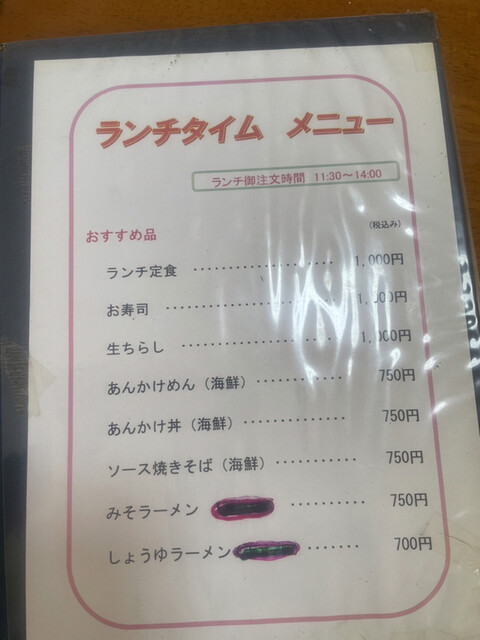 ランチタイム メニュー
ランチ御注文時間 11:30～14:00
(税込み)
おすすめ品
ランチ定食 ・・・・・・・・・・・・・・・・・・・・ 1,000円
お寿司 ・・・・・・・・・・・・・・・・・・・・・・・・ 1,000円
生ちらし ・・・・・・・・・・・・・・・・・・・・・・ 1,000円
あんかけめん（海鮮）・・・・・・・・・・・・ 750円
あんかけ丼（海鮮）・・・・・・・・・・・・・・ 750円
ソース焼きそば（海鮮） ・・・・・・・・・・・ 750円
みそラーメン ・・・・・・・・・・ 750円
しょうゆラーメン ・・・・・・・ 700円